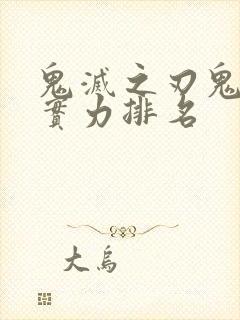 鬼滅之刃鬼
實力排名
大烏